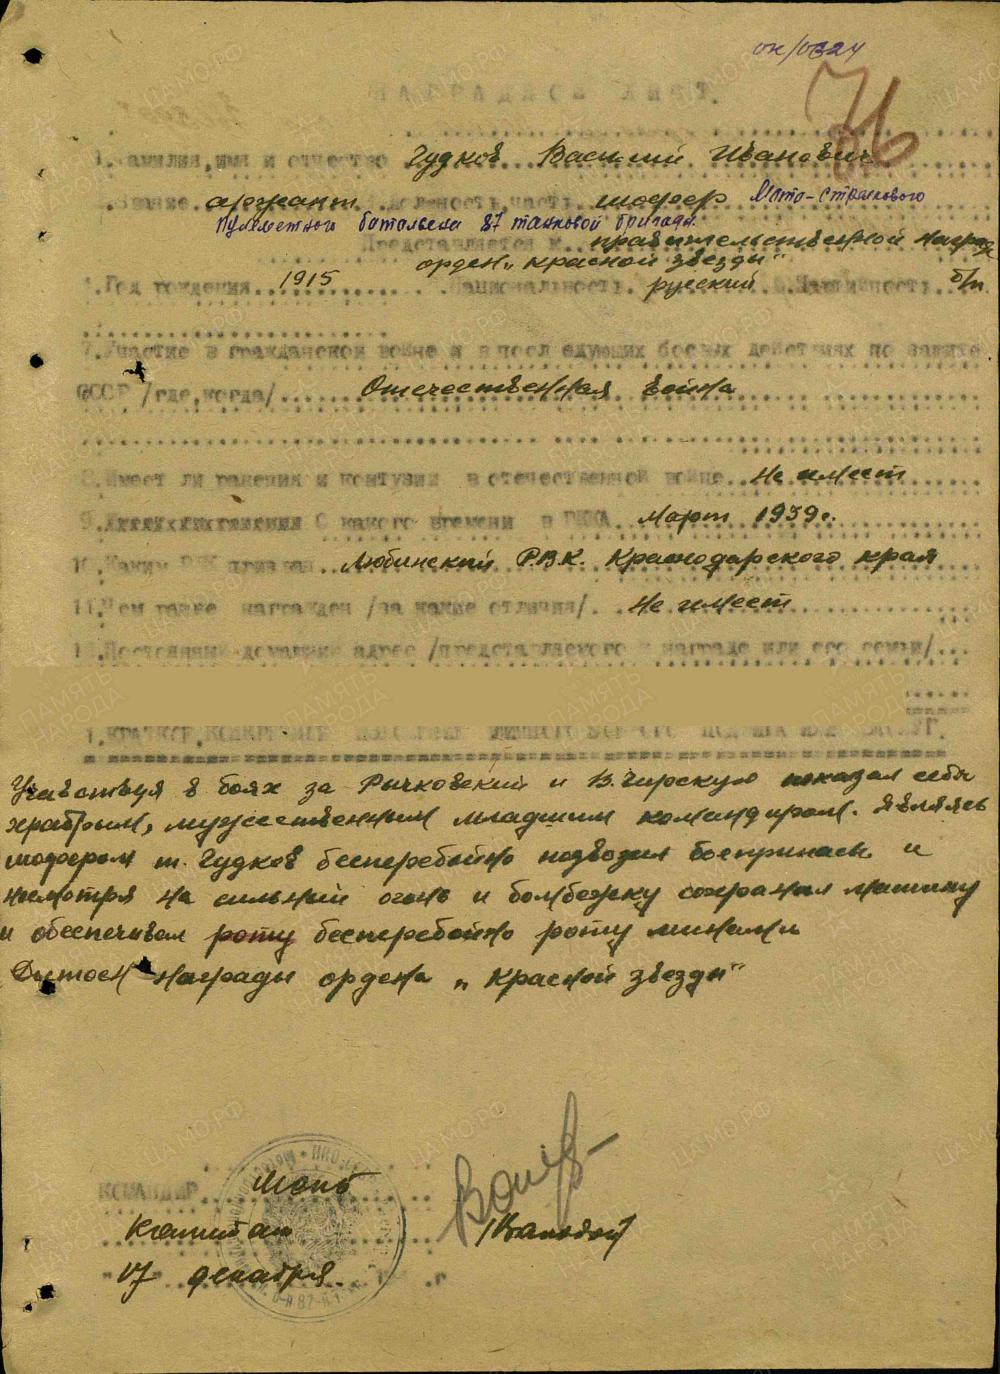 НАГРАДНОЙ ЛИСТ.
76
1.Фамилия,имя и отчество Чудков Василий Иванович
Звание сержант Должность,часть шофер Мото-стрелкового
пулеметного батальона 87 танковой бригады
Представляется к правительственной награде
орден „Красной звезды"
4.Год рождения 1915 Национальность русский 6.Партийность б/п
7.Участие в гражданской войне и в последующих боевых действиях по защите
СССР /где,когда/ Отечественная война
8.Имеет ли ранения и контузии в отечественной войне Не имеет
9. С какого времени в РККА Март 1939г.
10.Каким РВК призван Любинский Р.В.К. Краснодарского края
11.Чем ранее награжден /за какие отличия/. Не имеет
12.Постоянный домашний адрес /представляемого к награде или его семьи/...
1.КРАТКОЕ,КОНКРЕТНОЕ ИЗЛОЖЕНИЕ ЛИЧНОГО БОЕВОГО ПОДВИГА ИЛИ ЗАСЛУГ.
Участвуя в боях за Рычковский и В.Чирскую показал себя
храбрым, мужественным младшим командиром. Являясь
шофером т. Чудков бесперебойно подвозил боеприпасы и
несмотря на сильный огонь и бомбежку сохранил машину
и обеспечивал роту бесперебойно роту минами
Достоен награды ордена „Красной звезды"
КОМАНДИР МСПБ
Капитан
17 декабря г